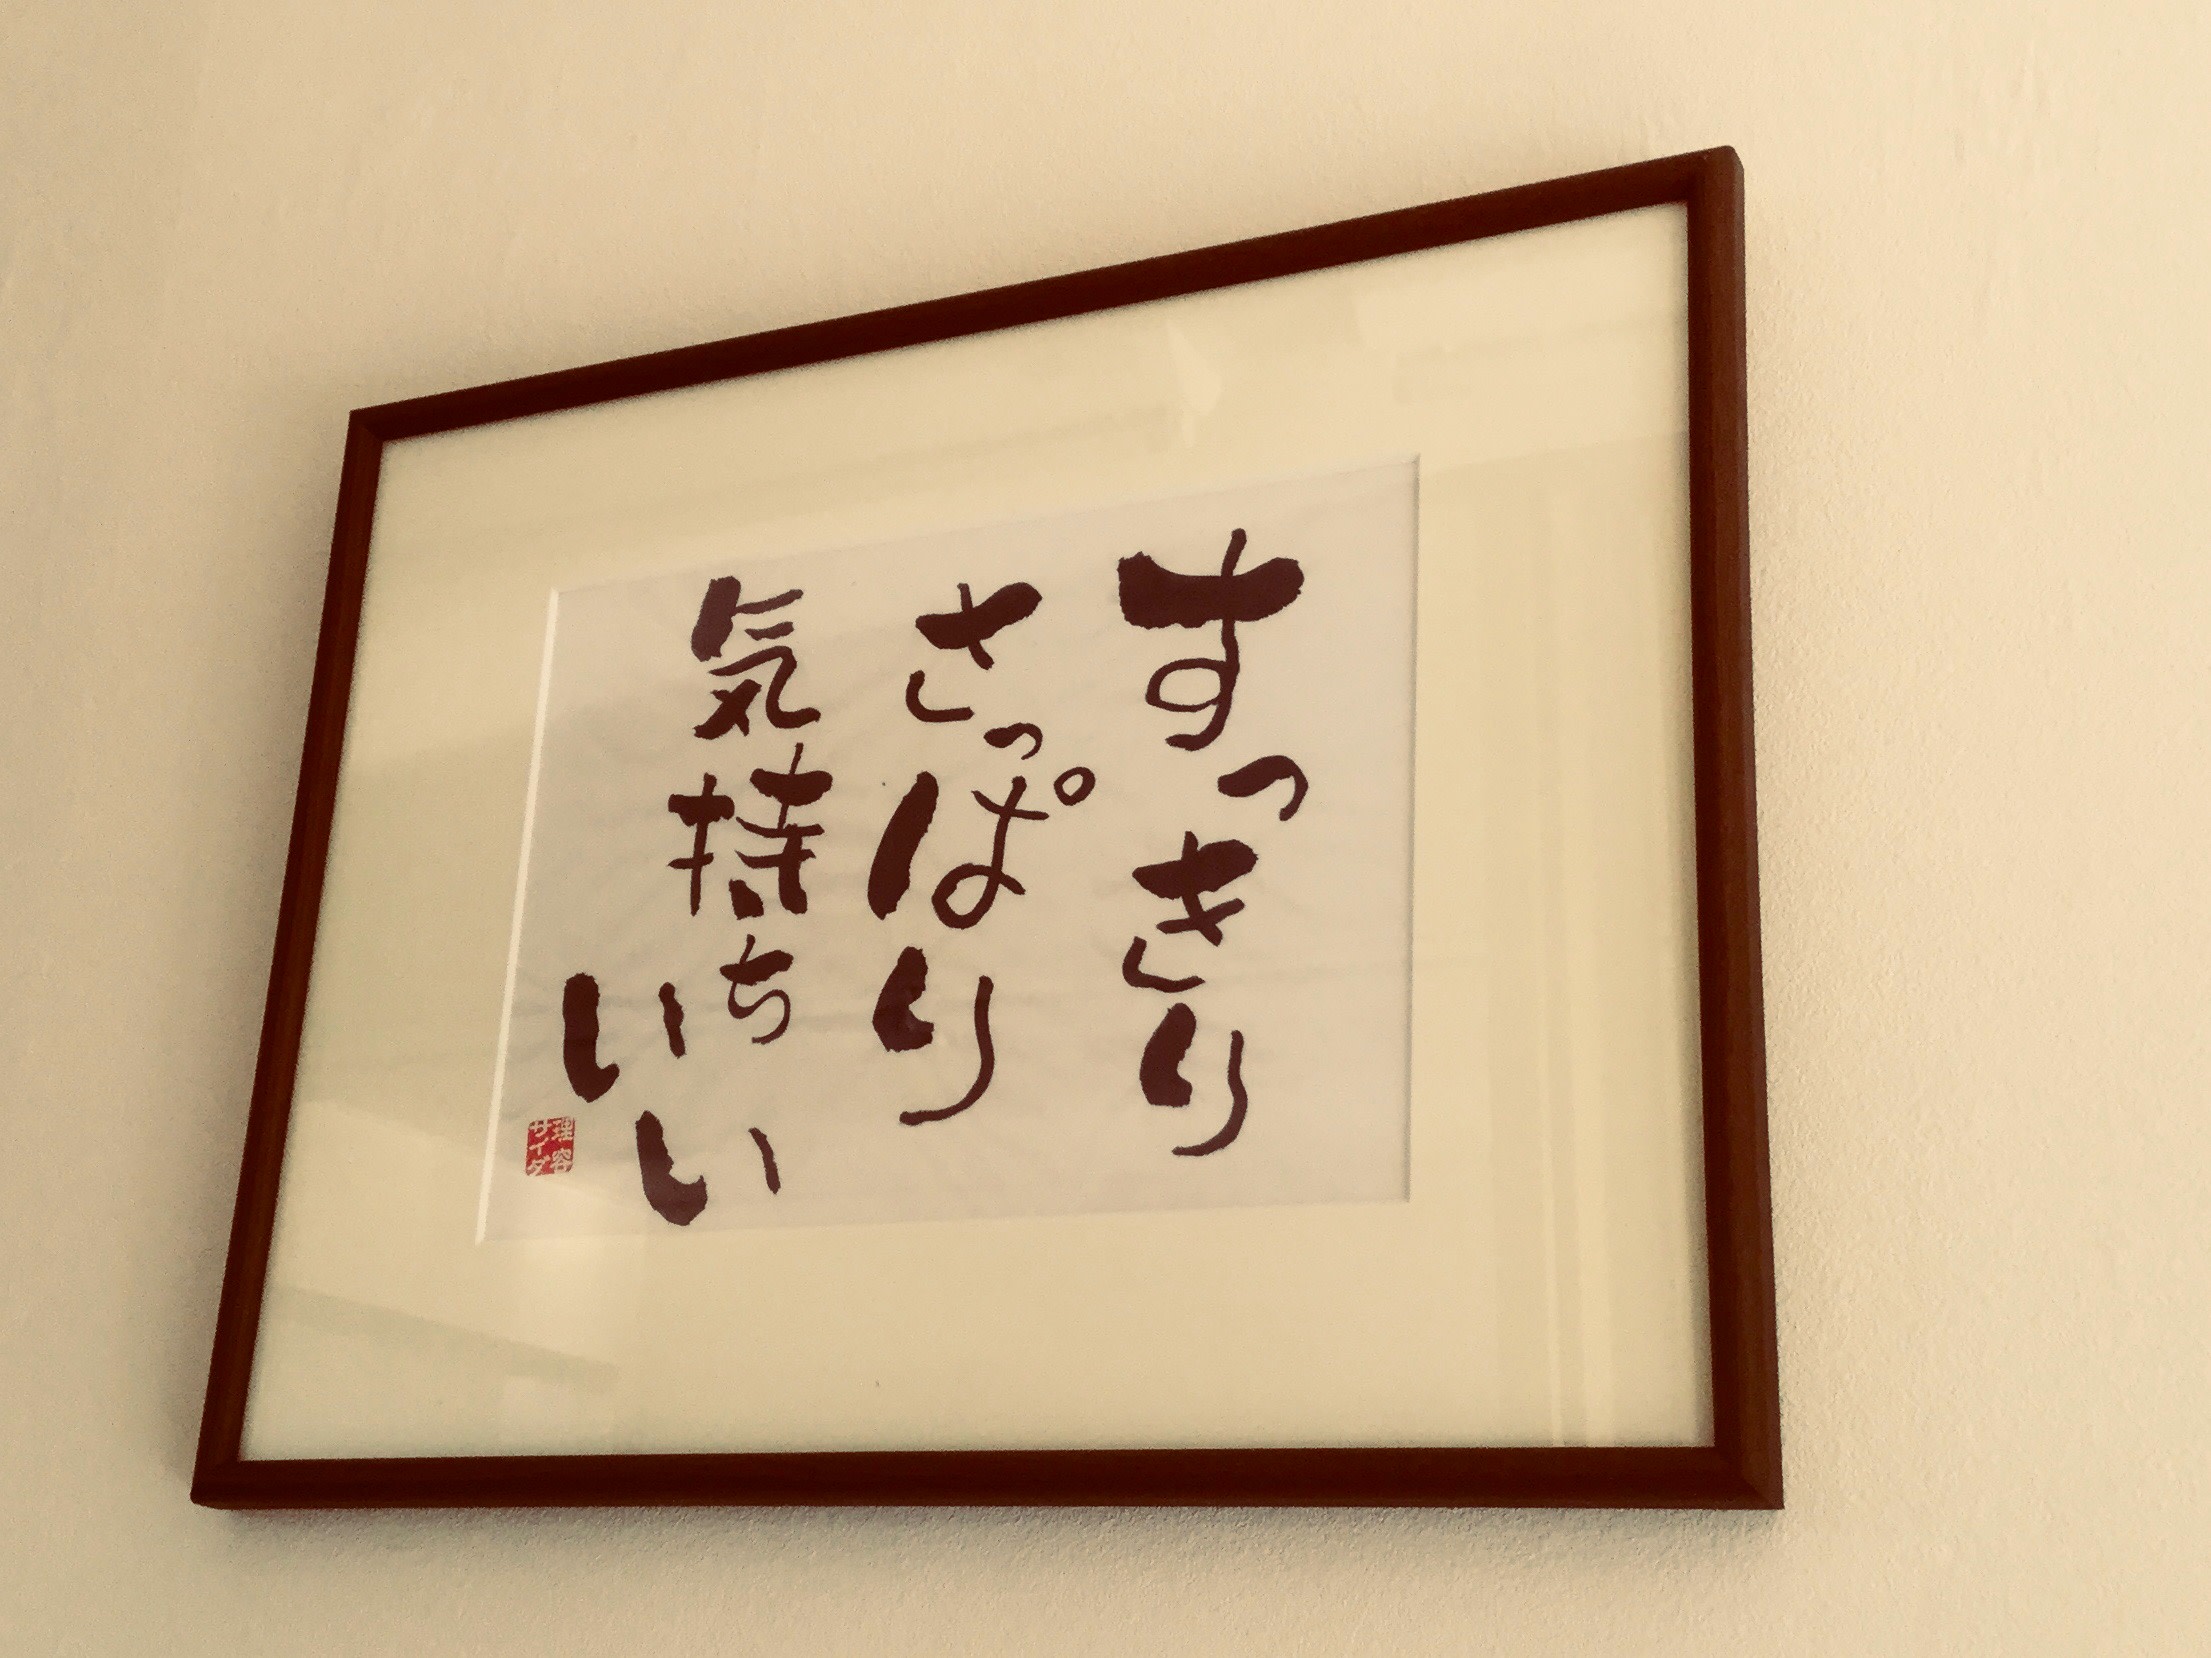 すっきり
さっぱり
気持ち
いい
理容
サイダ